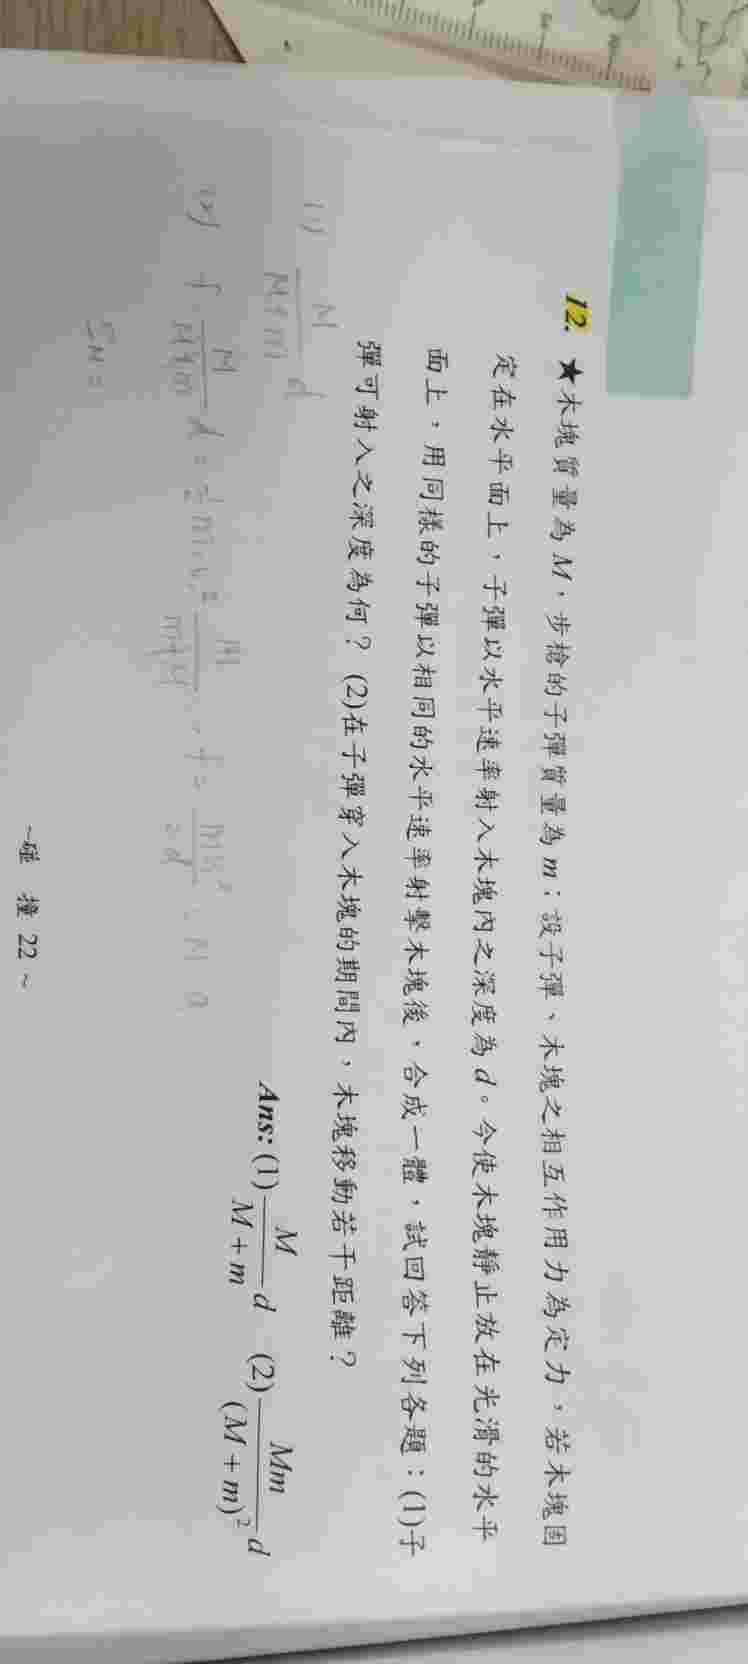 12. ★木塊質量為 M,步槍的子彈質量為 m;設子彈、木塊之相互作用力為定力,若木塊固
定在水平面上,子彈以水平速率射入木塊內之深度為 d。今使木塊靜止放在光滑的水平
面上,用同樣的子彈以相同的水平速率射擊木塊後,合成一體,試回答下列各題:(1)子
彈可射入之深度為何? (2)在子彈穿入木塊的期間內,木塊移動若干距離?
Ans: (1) M/(M+m) d (2) Mm/(M+m)² d
(1) M/(M+m) d
(2) f M/(M+m) d = ½ m v₀² M/(m+M)
~碰 撞 22 ~